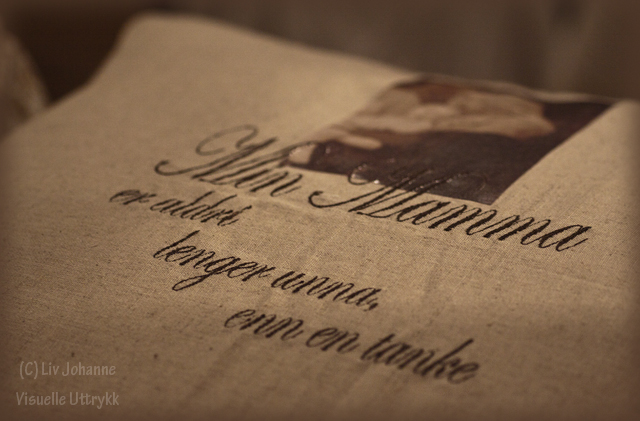 Min Mamma
er aldri
lenger unna,
enn en tanke
(C) Liv Johanne
Visuelle Uttrykk